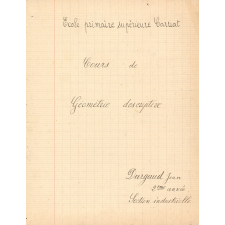 Ecole primaire supérieure Carriat
Cours de
Géométrie descriptive
Durgaud Jean
3ème année
Section industrielle